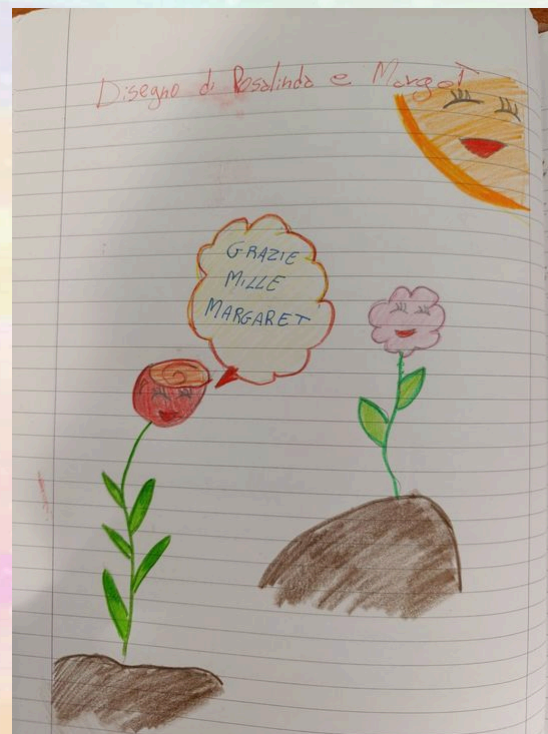 Disegno di Rosalinda e Margot
GRAZIE
MILLE
MARGARET